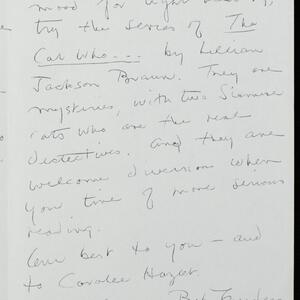 mood for light
try the series of The
Cat Who... by Lillian
Jackson Braun. They are
mysteries, with two Siamese
cats who are the real
detectives. And they are
welcome diversion when
you tire of more serious
reading.
Our best to you – and
to Coralee Hazlet.